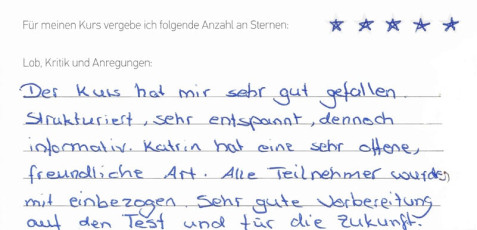 Für meinen Kurs vergebe ich folgende Anzahl an Sternen: ☆ ☆ ☆ ☆ ☆
Lob, Kritik und Anregungen:
Der Kurs hat mir sehr gut gefallen.
Strukturiert, sehr entspannt, dennoch
informativ. Katrin hat eine sehr offene,
freundliche Art. Alle Teilnehmer wurden
mit einbezogen. Sehr gute Vorbereitung
auf den Test und für die Zukunft.